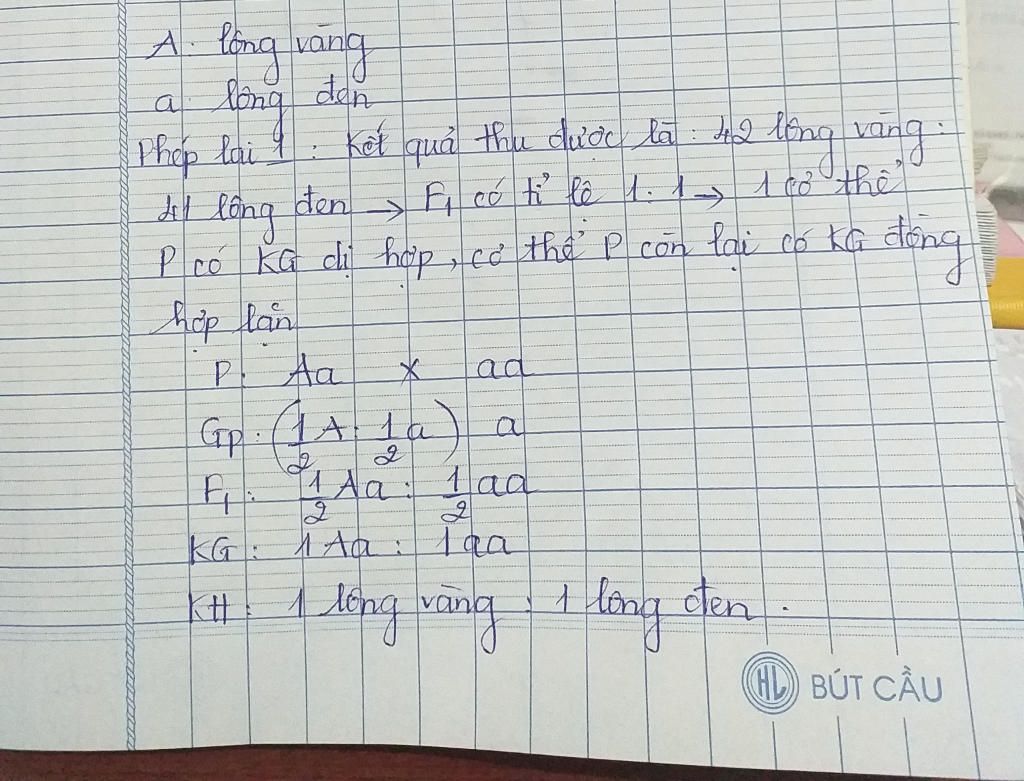 A: lông vàng
a: lông đen
Phép lai 1: Kết quả thu được là: 42 lông vàng:
41 lông đen → F₁ có tỉ lệ 1:1 → 1 cơ thể
P có KG dị hợp, cơ thể P còn lại có KG đồng
hợp lặn
P: Aa × aa
Gp: (1/2 A: 1/2 a) a
F₁: 1/2 Aa: 1/2 aa
KG: 1Aa: 1aa
KH: 1 lông vàng: 1 lông đen.
HL BÚT CẦU